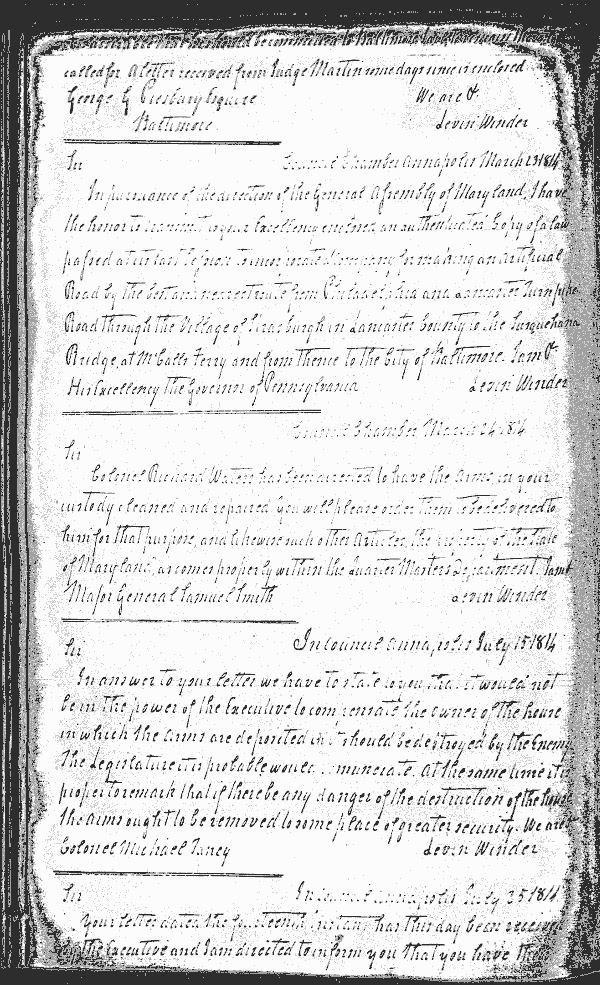 should be committed to Baltimore
called for A letter received from Judge Martin some days since is enclosed
George G Presbury Esquire We are &
Baltimore Levin Winder
Sir Council Chamber Annapolis March 23 1814
In pursuance of the direction of the General Assembly of Maryland, I have
the honor to transmit to your Excellency enclosed an authenticated Copy of a law
passed at its last Session to incorporate a Company for making an artificial
Road by the best and nearest route from Philadelphia and Lancaster Turnpike
Road through the Village of Strasburgh in Lancaster County to the Susquehana
Bridge, at McCalls Ferry and from thence to the City of Baltimore. I am &
His Excellency the Governor of Pennsylvania Levin Winder
Council Chamber March 24 1814
Sir
Colonel Richard Waters has been directed to have the Arms, in your
custody cleaned and repaired you will please order them to be delivered to
him for that purpose, and likewise such other Articles, the property of the State
of Maryland, as comes properly within the Quarter Masters Department. I am &
Major General Samuel Smith Levin Winder
Sir In Council Annapolis July 15 1814
In answer to your letter we have to state to you, that it would not
be in the power of the Executive to compensate the owner of the house
in which the Arms are deposited if it should be destroyed by the Enemy
The Legislature it is probable would remunerate. At the same time it is
proper to remark that if there be any danger of the destruction of the house
the arms ought to be removed to some place of greater security. We are &
Colonel Michael Taney Levin Winder
Sir In Council Annapolis July 1814
Your letter dated the fourteenth instant has this day been received
by the Executive and I am directed to inform you that you have